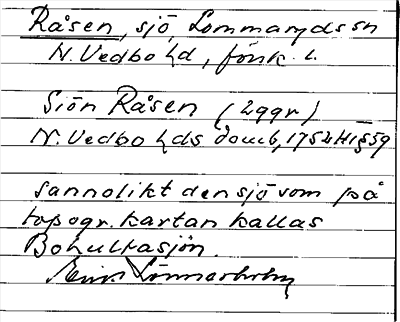 Råsen, sjö, Lommaryds sn
N. Vedbo hd, Jönk. l.
Siön Råsen (2ggr)
N. Vedbo hds domb, 1752 Ht § 59
Sannolikt den sjö som på
topogr. kartan kallas
Bohultasjön.